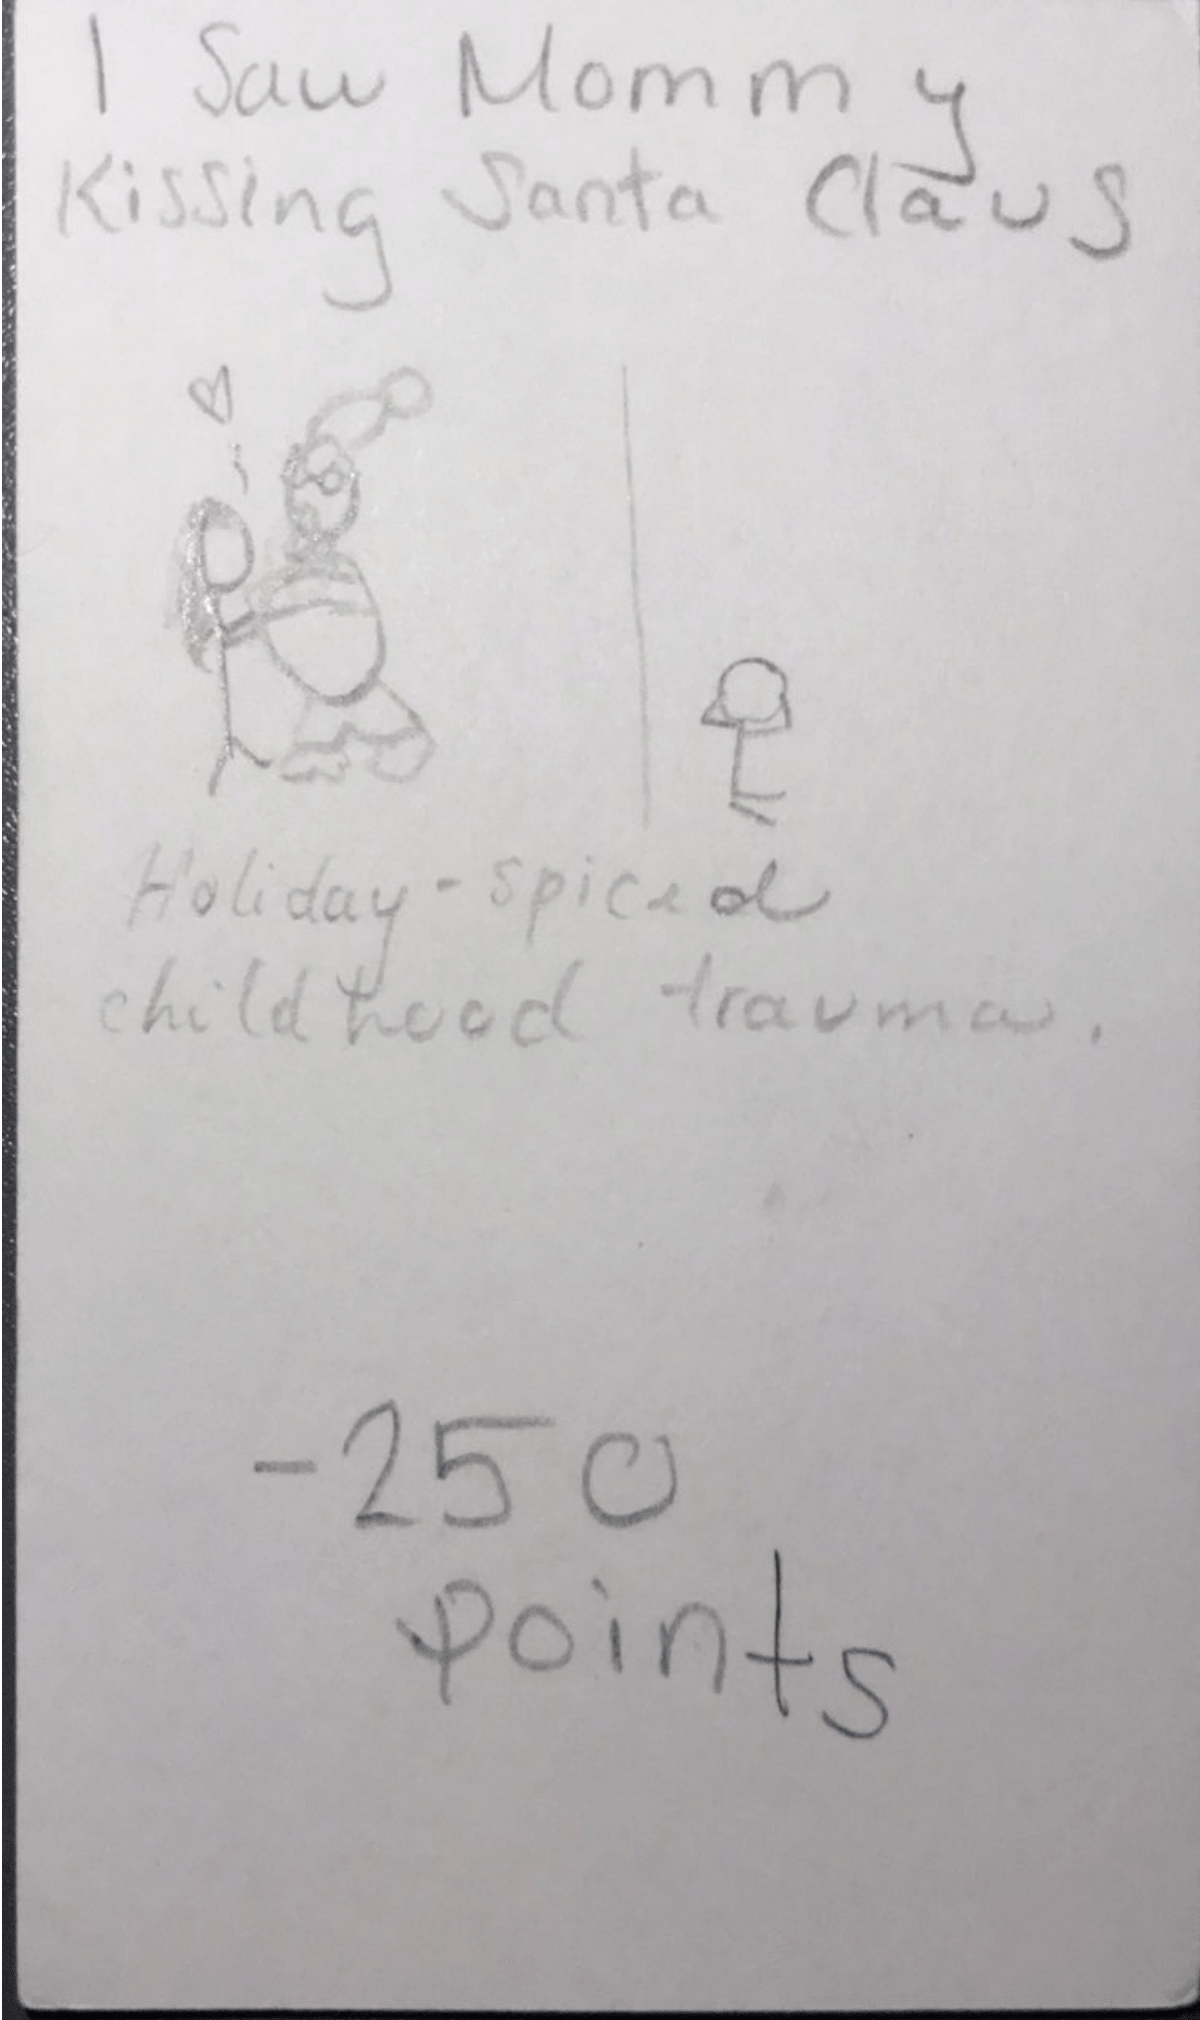 I Saw Mommy
Kissing Santa Claus
Holiday-spiced
childhood trauma.
-250
points